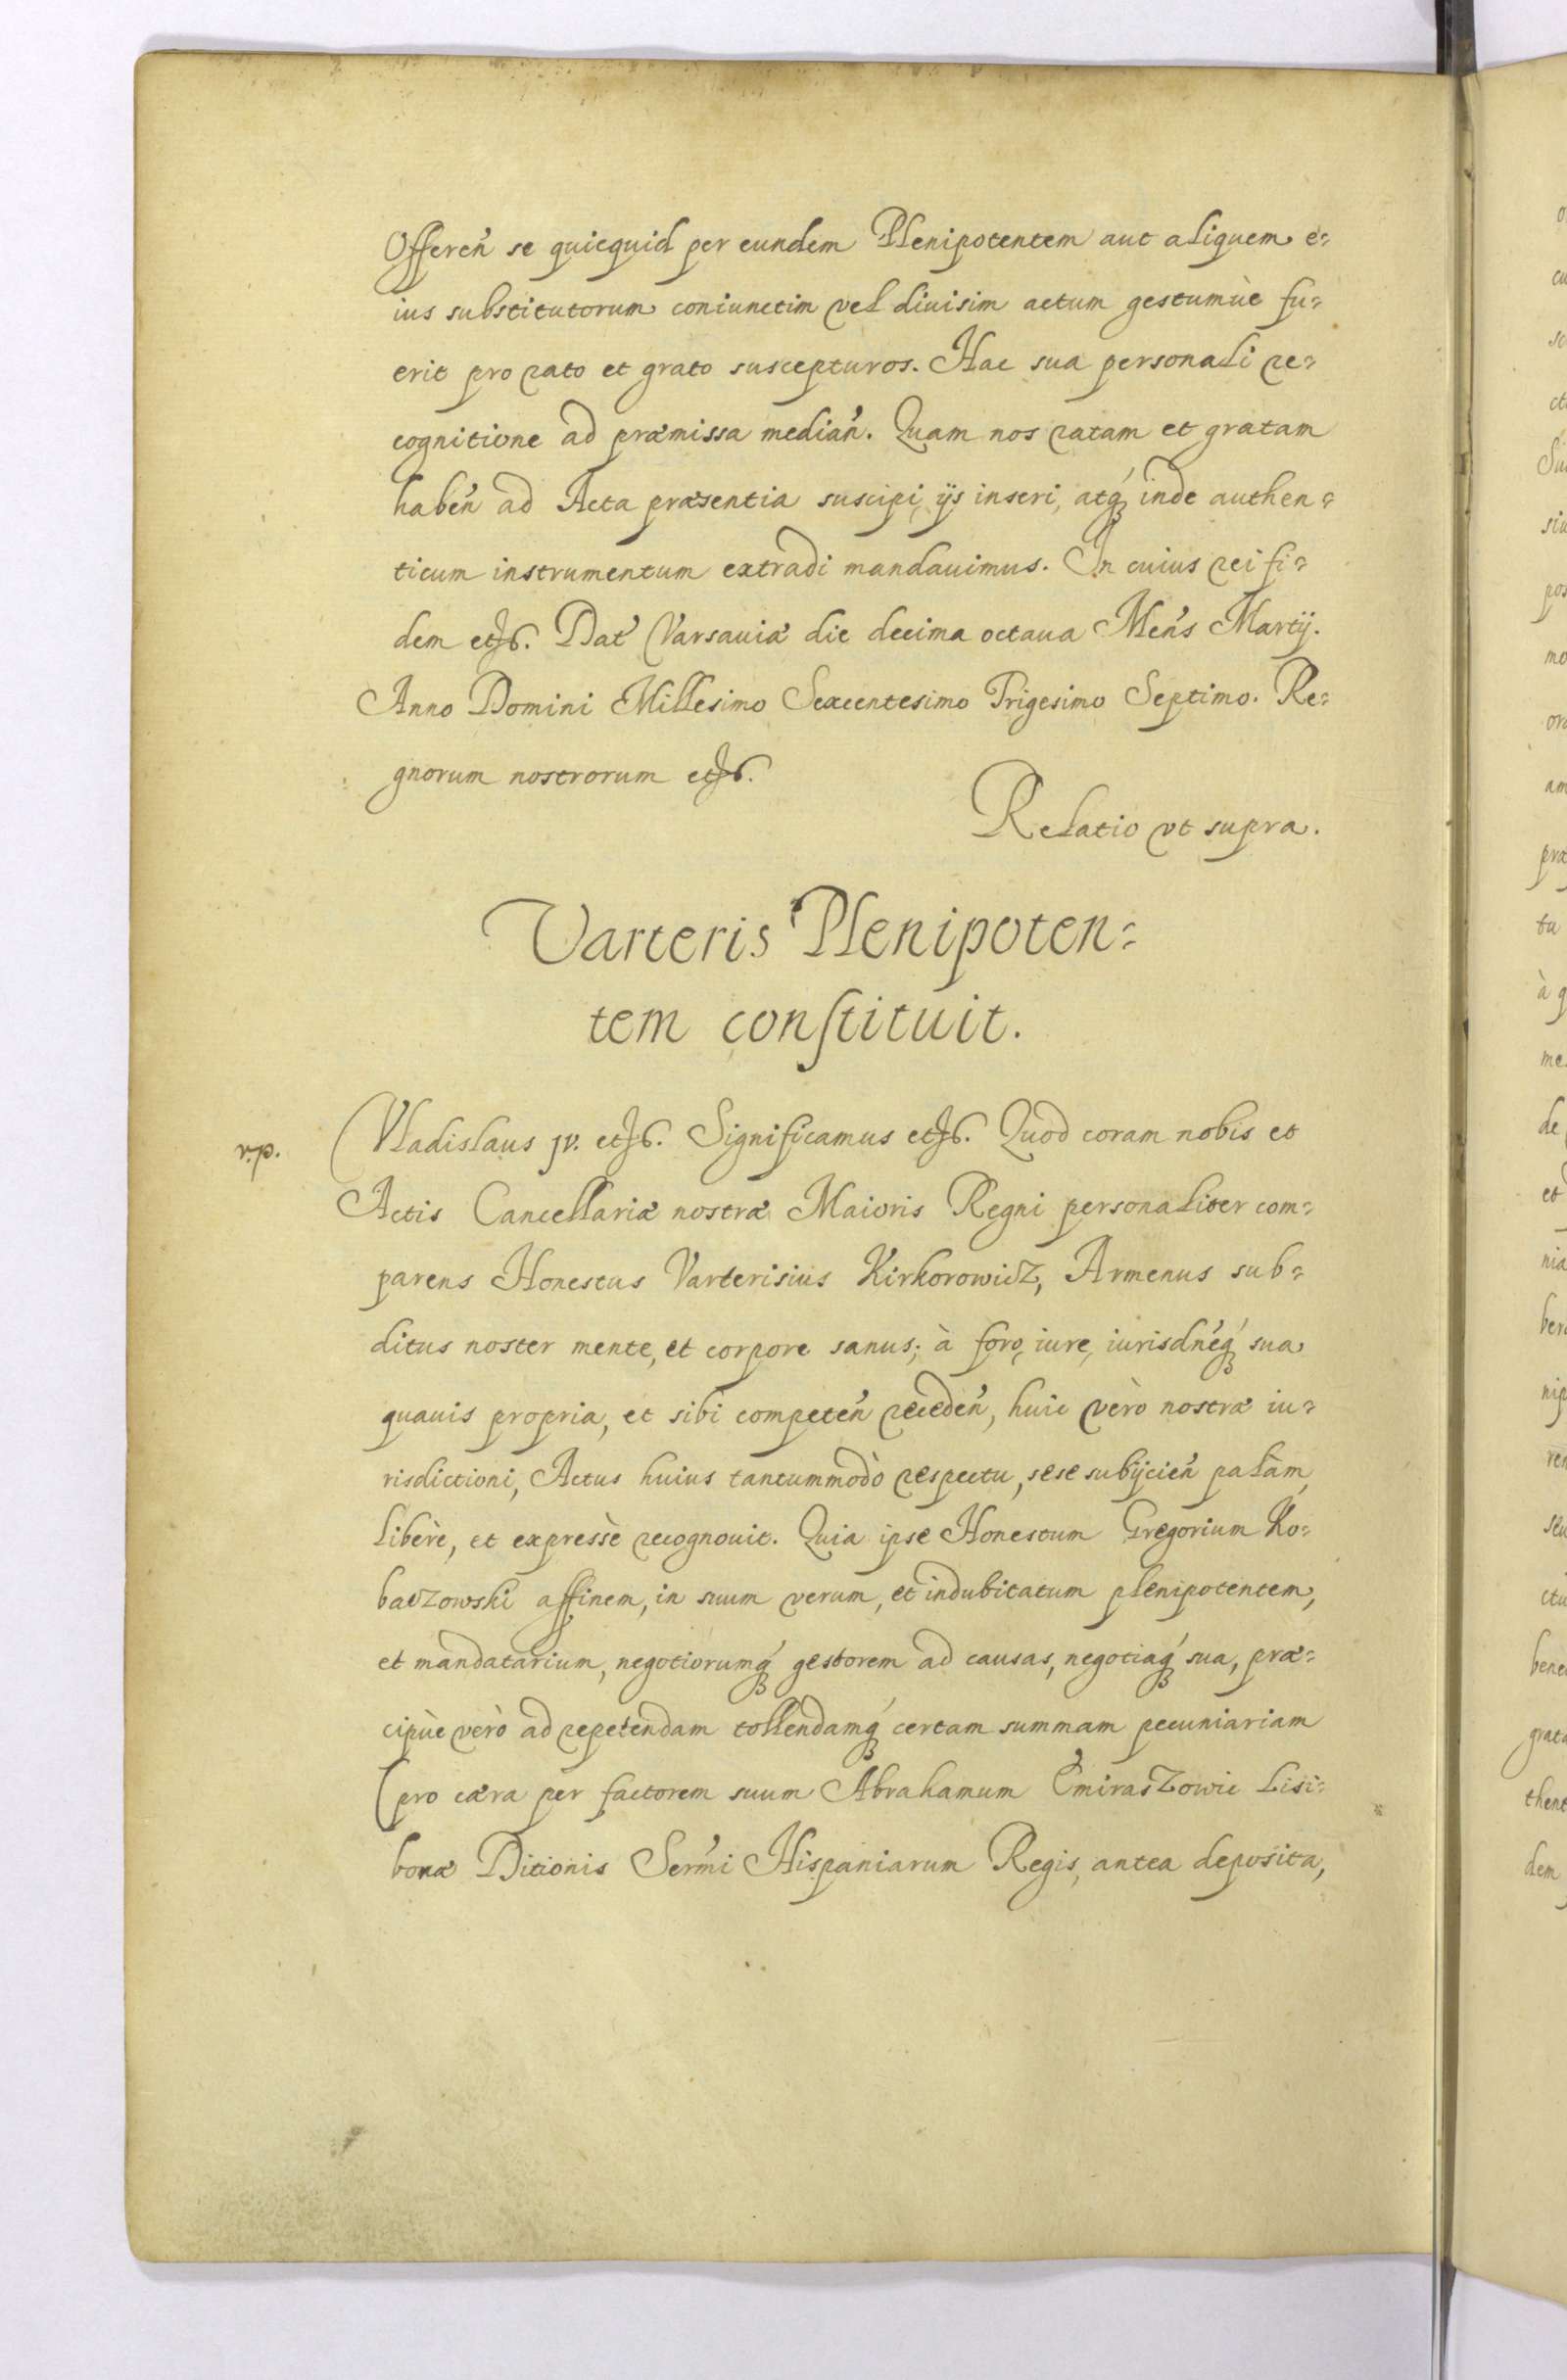 Offereñ se quicquid per eundem Plenipotentem aut aliquem e=
ius substitutorum coniunctim vel diuisim actum gestumùe fu=
erit pro rato et grato suscepturos. Hac sua personali re=
cognitione ad præmissa median̄. Quam nos ratam et gratam
haben̄ ad Acta præsentia suscipi, ijs inseri, atq́ inde authen=
ticum instrumentum extradi mandauimus. In cuius rei fi=
dem etc. Dat́ Varsauiæ die decima octaua Meńs Martij.
Anno Domini Millesimo Sexcentesimo Trigesimo Septimo. Re=
gnorum nostrorum etc.
Relatio vt supra.
Varteris Plenipoten=
tem constituit.
v.p.
Vladislaus jv. etc. Significamus etc. Quod coram nobis et
Actis Cancellariæ nostræ Maioris Regni personaliter com=
parens Honestus Varterisius Kirkorowicz, Armenus sub=
ditus noster mente, et corpore sanus; à foro, iure, iurisdńeq́ sua
quauis propria, et sibi competen̄ receden̄, huic verò nostræ iu=
risdictioni, Actus huius tantummodò respectu, sese subijcien̄ palàm,
liberè, et expressè recognouit. Quia ipse Honestum Gregorium Ko=
baczowski affinem, in suum verum, et indubitatum plenipotentem,
et mandatarium, negotiorumq́ gestorem ad causas, negotiaq́ sua, præ=
cipùe verò ad repetendam tollendamq́ certam summam pecuniariam
(pro cæra per factorem suum Abrahamum Emiraszowic Lisi=
bonæ Ditionis Serḿi Hispaniarum Regis, antea deposita,